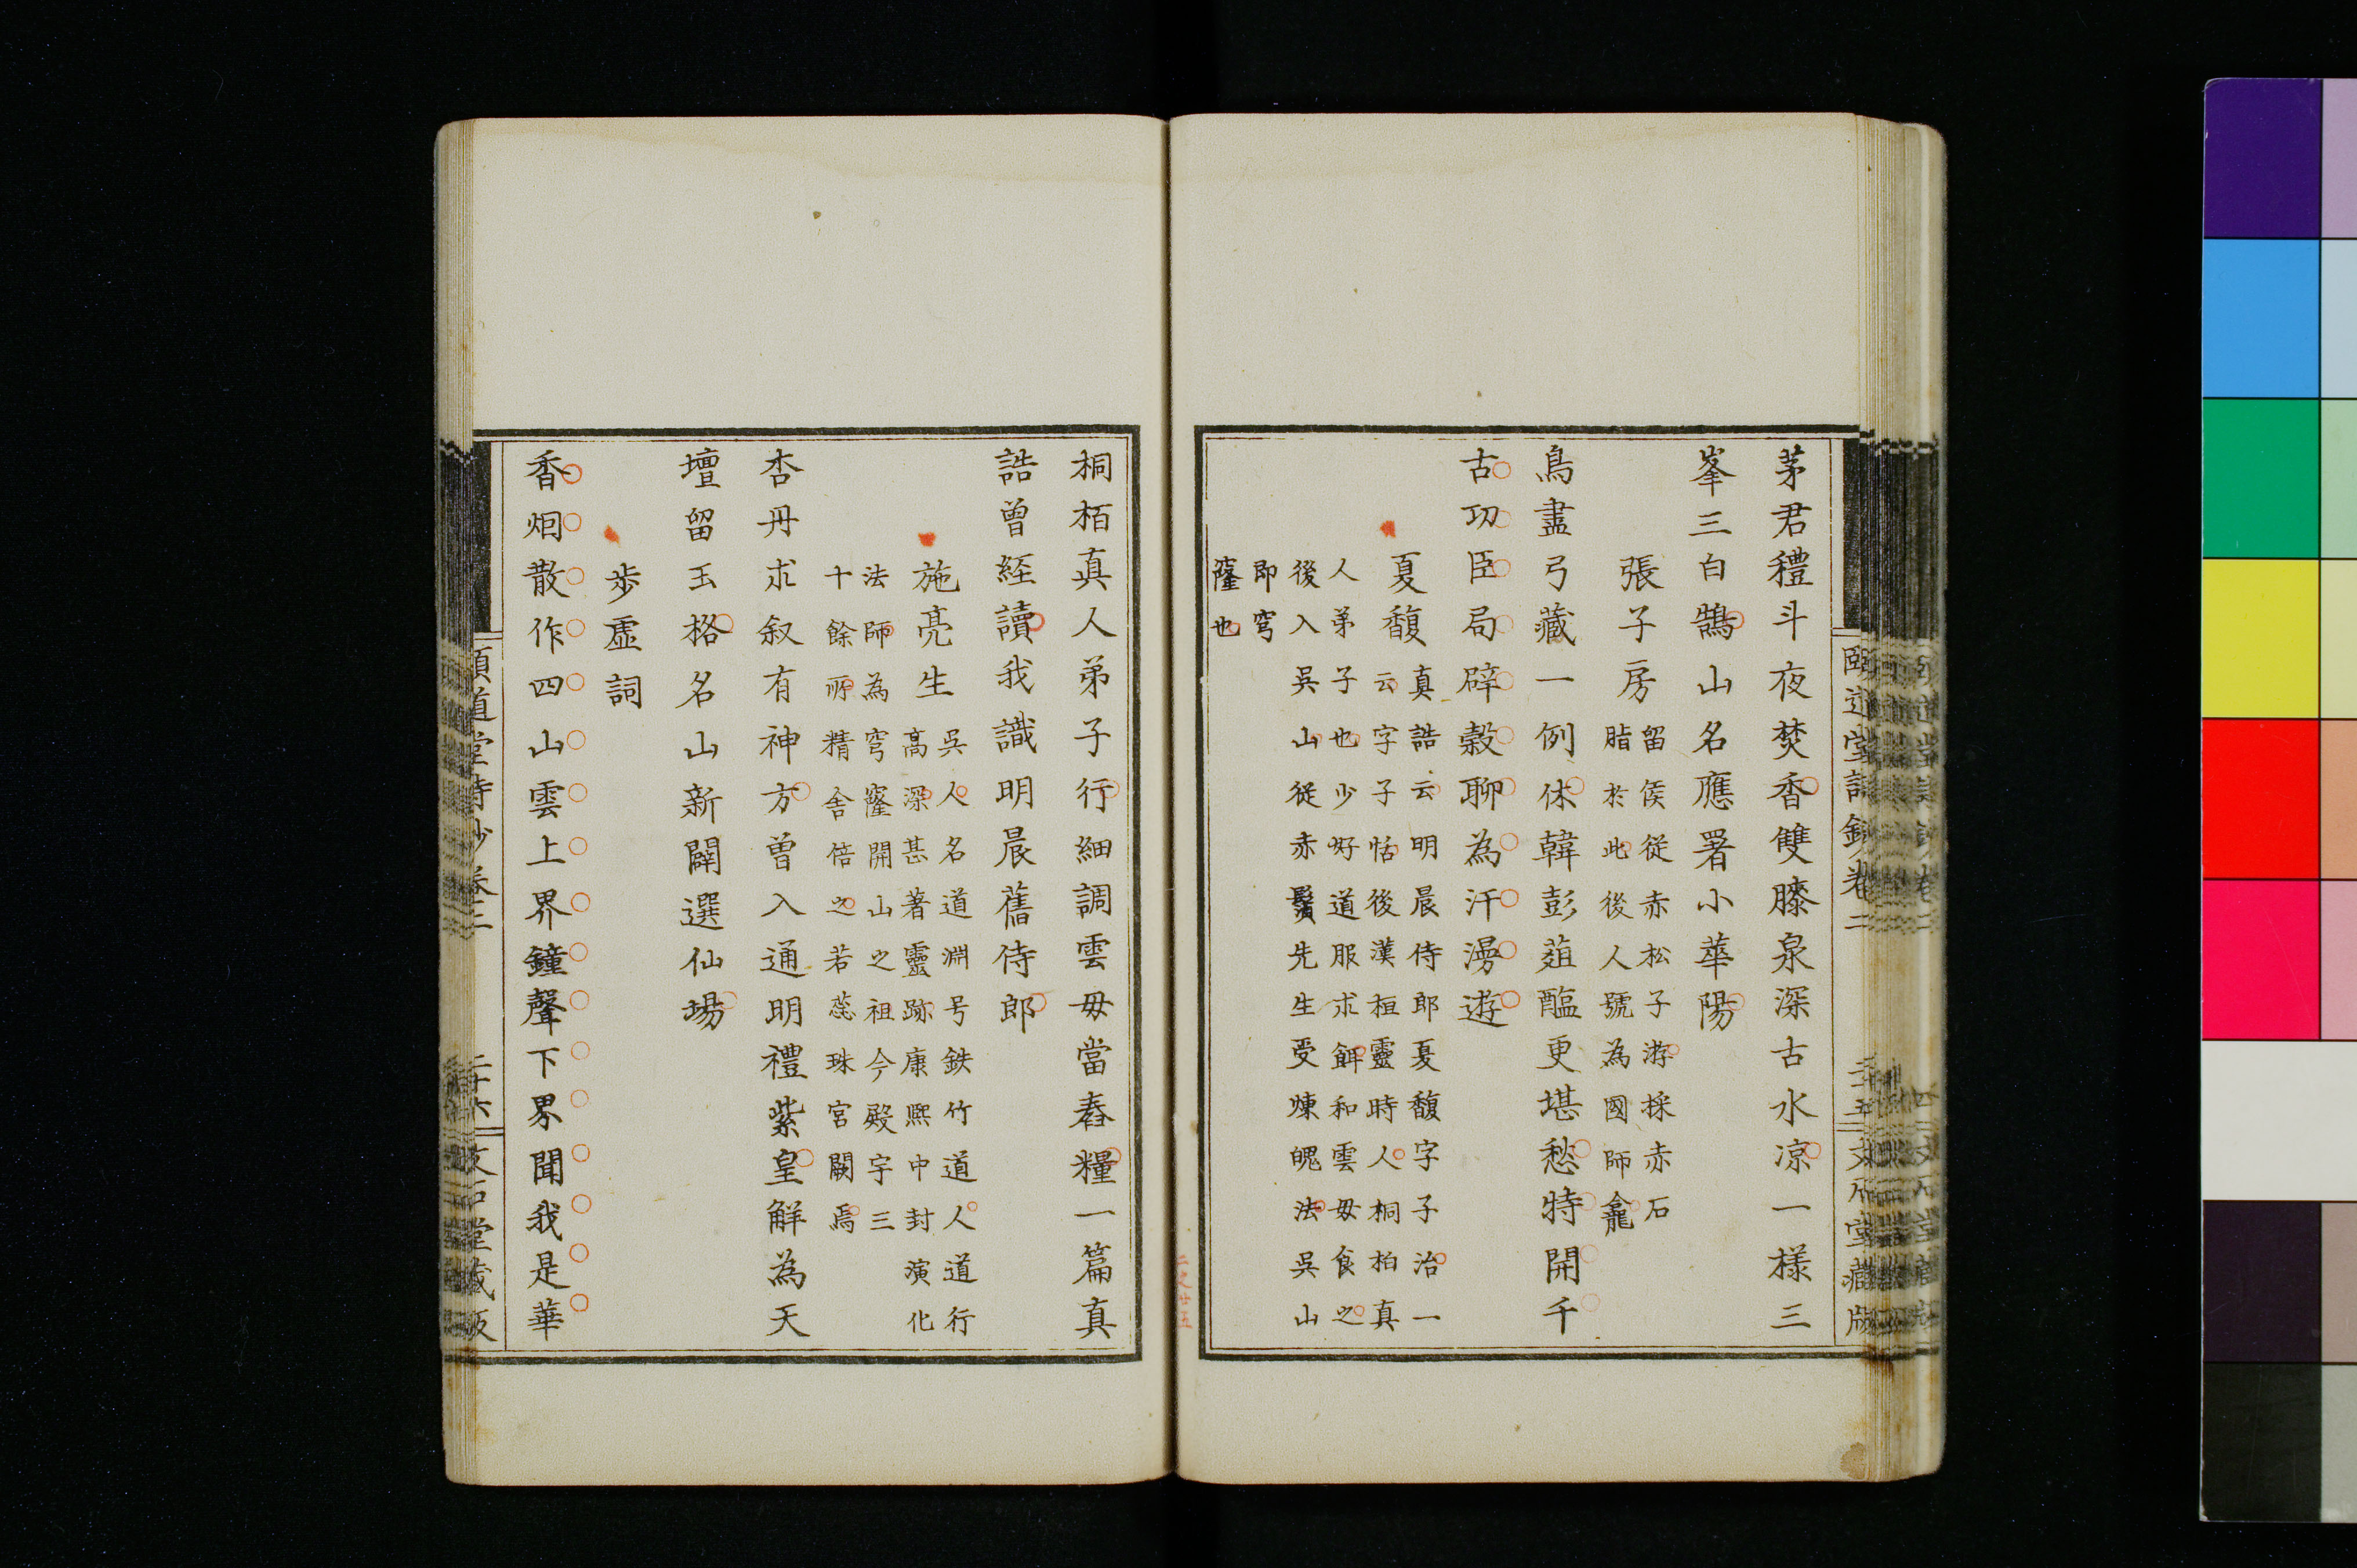 茅君禮斗夜焚香雙膝泉深古水凉一様三
峯三白鵠山名應署小華陽
張子房留侯從赤松子游採赤石
脂於此後人號為國師龕
鳥盡弓藏一例休韓彭葅醢更堪愁特開千
古功臣局辟穀聊為汗漫遊
夏馥真誥云明晨侍郎夏馥字子治一
云字子恬後漢桓靈時人桐柏真
人弟子也少好道服求餌和雲毋食之
後入吳山從赤鬚先生受煉魄法吳山
即穹
窿也
頤道堂詩鈔卷二
二十五
文石堂藏版
桐栢真人弟子行細調雲毋當舂糧一篇真
誥曾経讀我識明晨舊侍郎
施亮生吳人名道淵号鉄竹道人道行
高深甚著靈跡康熙中封演化
法師為穹窿開山之祖今殿宇三
十餘所精舍倍之若蕊珠宫闕焉
杏丹求叙有神方曾入通明禮紫皇解為天
壇留玉格名山新闢選仙場
步虚詞
香烟散作四山雲上界鐘聲下界聞我是華
頤道堂詩鈔卷二
二十六
文石堂藏版
二之廿五